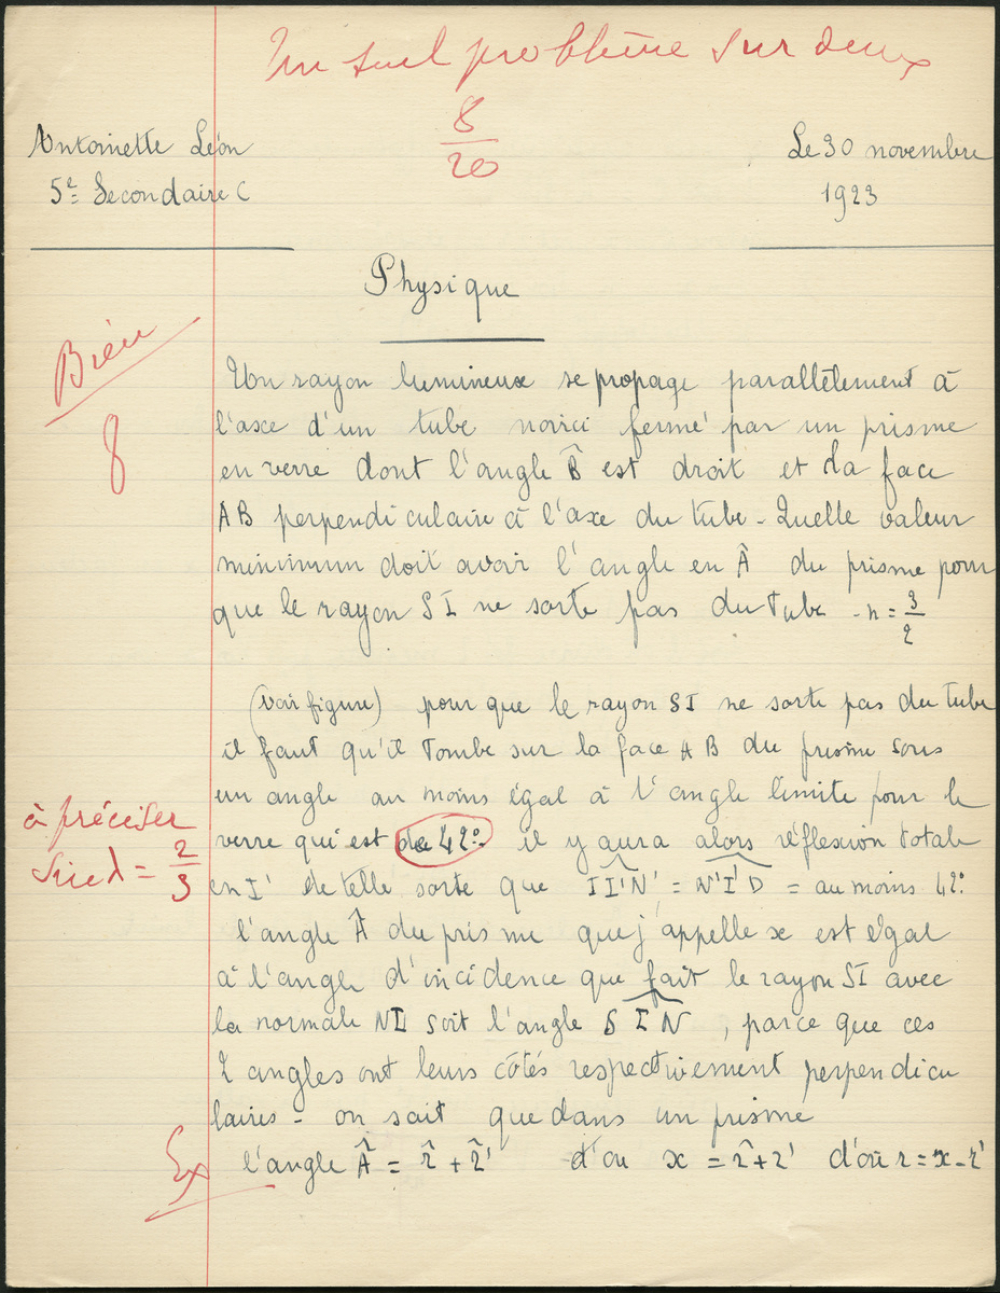 Un seul problème sur deux
8/20
Antoinette Léon
Le 30 novembre
5e Secondaire C
1923
Physique
Bien
8
Un rayon lumineux se propage parallèlement à
l'axe d'un tube noirci fermé par un prisme
en verre dont l'angle B̂ est droit et la face
AB perpendiculaire à l'axe du tube - Quelle valeur
minimum doit avoir l'angle en Â du prisme pour
que le rayon SI ne sorte pas du tube - n = 3/2
(voir figure) pour que le rayon SI ne sorte pas du tube
il faut qu'il tombe sur la face AB du prisme sous
un angle au moins égal à l'angle limite pour le
verre qui est de 42°. il y aura alors réflexion totale
à préciser
sin λ = 2/3
en I' de telle sorte que II'N' = N'I'D = au moins 42°
l'angle Â du prisme que j'appelle x est égal
à l'angle d'incidence que fait le rayon SI avec
la normale NI soit l'angle SIN, parce que ces
2 angles ont leurs côtés respectivement perpendicu
laires - on sait que dans un prisme
l'angle Â = r̂ + r̂' d'où x = r̂ + r' d'où r = x - r'